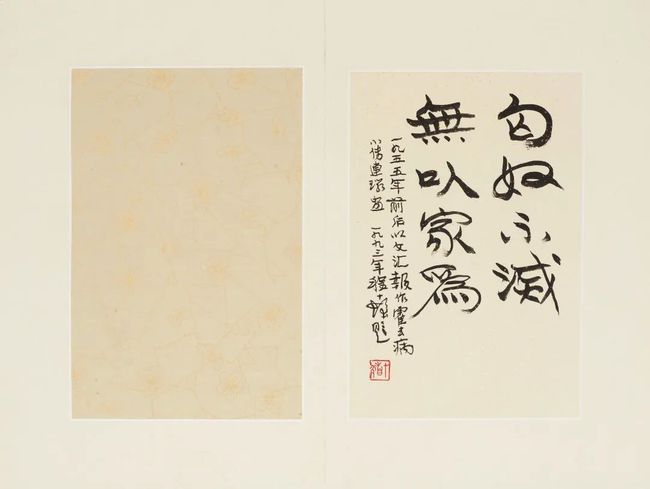 匈奴不滅
無以家為
一九五五年前后以文汇報作霍去病
小傳連環画 一九九三年程十髮題